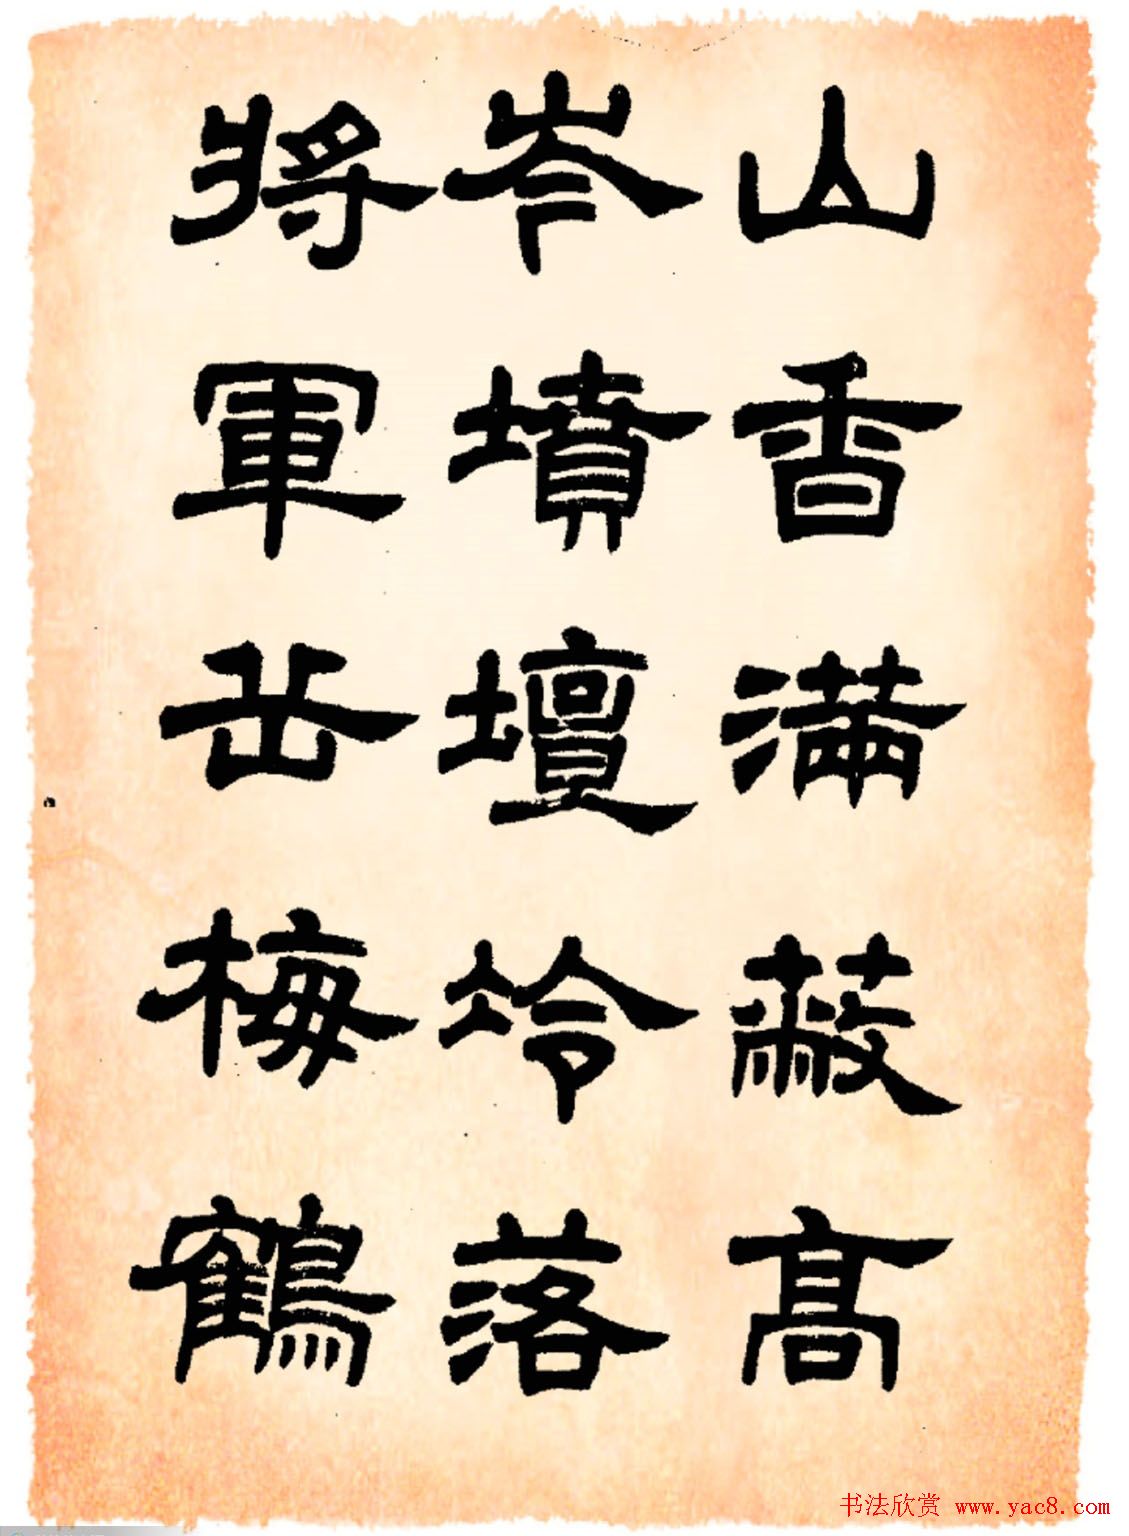 山香满蔽高
岑墳壇落
將軍岳梅鶴
书法欣赏 www.yac8.com